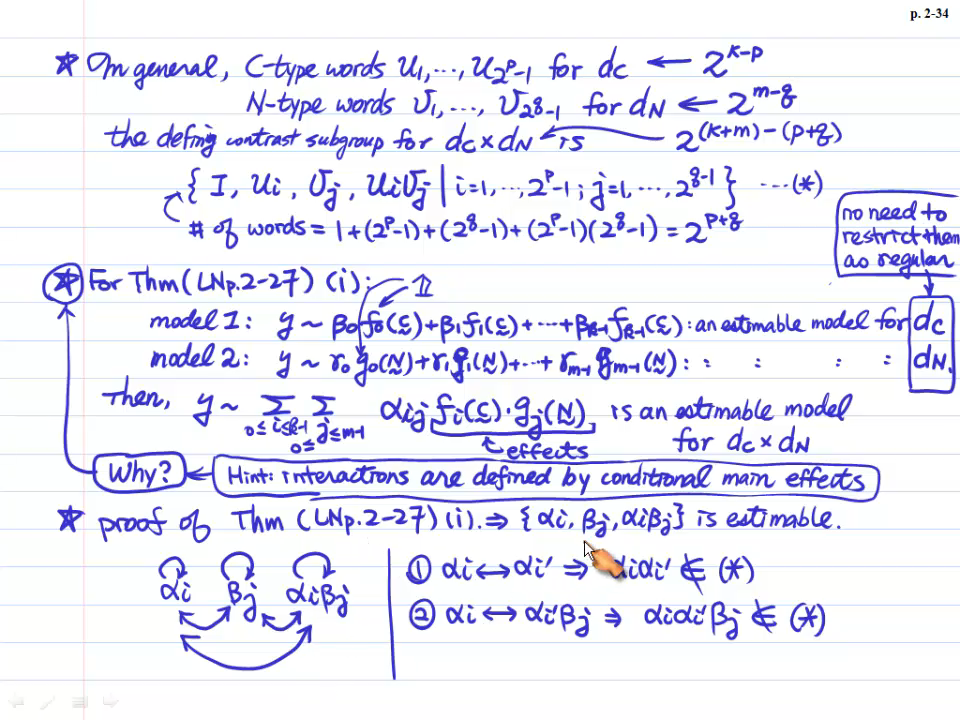 p. 2-34
★ In general, C-type words u₁, ⋯, u_{2^p-1} for d_C ← 2^{k-p}
N-type words v₁, ⋯, v_{2^q-1} for d_N ← 2^{m-q}
the defing contrast subgroup for d_C × d_N is ← 2^{(k+m)-(p+q)}
{ I, u_i, v_j, u_i v_j | i=1, ⋯, 2^p-1; j=1, ⋯, 2^{q-1} } ⋯(*)
# of words = 1+(2^p-1)+(2^q-1)+(2^p-1)(2^q-1) = 2^{p+q}
no need to
restrict them
as regular
★ For Thm (LNp.2-27) (i): 𝟙
model 1: y ~ β₀f₀(C)+β₁f₁(C)+⋯+β_{k-1}f_{k-1}(C): an estimable model for d_C
model 2: y ~ r₀g₀(N)+r₁g₁(N)+⋯+r_{m-1}g_{m-1}(N): : : : : d_N.
Then, y ~ Σ_{0≤i≤k-1} Σ_{0≤j≤m-1} α_{ij} f_i(C)·g_j(N) is an estimable model
effects for d_C × d_N
Why? ← Hint: interactions are defined by conditional main effects
★ proof of Thm (LNp.2-27)(i). ⇒ {α_i, β_j, α_iβ_j} is estimable.
α_i β_j α_iβ_j
① α_i ↔ α_i′ ⇒ α_iα_i′ ∉ (*)
② α_i ↔ α_i′β_j ⇒ α_iα_i′β_j ∉ (*)